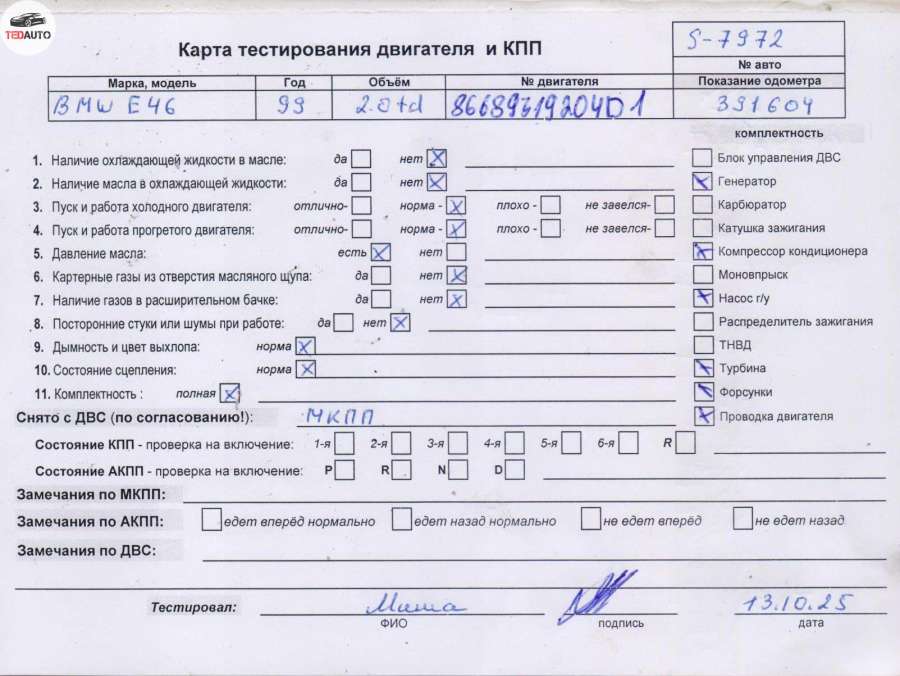 TEDAUTO
Карта тестирования двигателя и КПП
S-7972
№ авто
Марка, модель Год Объём № двигателя Показание одометра
BMW E46 99 2.0td 391604
комплектность
1. Наличие охлаждающей жидкости в масле: да нет Блок управления ДВС
2. Наличие масла в охлаждающей жидкости: да нет Генератор
3. Пуск и работа холодного двигателя: отлично- норма - плохо - не завелся- Карбюратор
4. Пуск и работа прогретого двигателя: отлично- норма - плохо - не завелся- Катушка зажигания
5. Давление масла: есть нет Компрессор кондиционера
6. Картерные газы из отверстия масляного щупа: да нет Моновпрыск
7. Наличие газов в расширительном бачке: да нет Насос г/у
8. Посторонние стуки или шумы при работе: да нет Распределитель зажигания
9. Дымность и цвет выхлопа: норма ТНВД
10. Состояние сцепления: норма Турбина
11. Комплектность : полная Форсунки
Снято с ДВС (по согласованию!): МКПП Проводка двигателя
Состояние КПП - проверка на включение: 1-я 2-я 3-я 4-я 5-я 6-я R
Состояние АКПП - проверка на включение: P R N D
Замечания по МКПП:
Замечания по АКПП: едет вперёд нормально едет назад нормально не едет вперёд не едет назад
Замечания по ДВС:
Тестировал: Миша 13.10.25
ФИО подпись дата